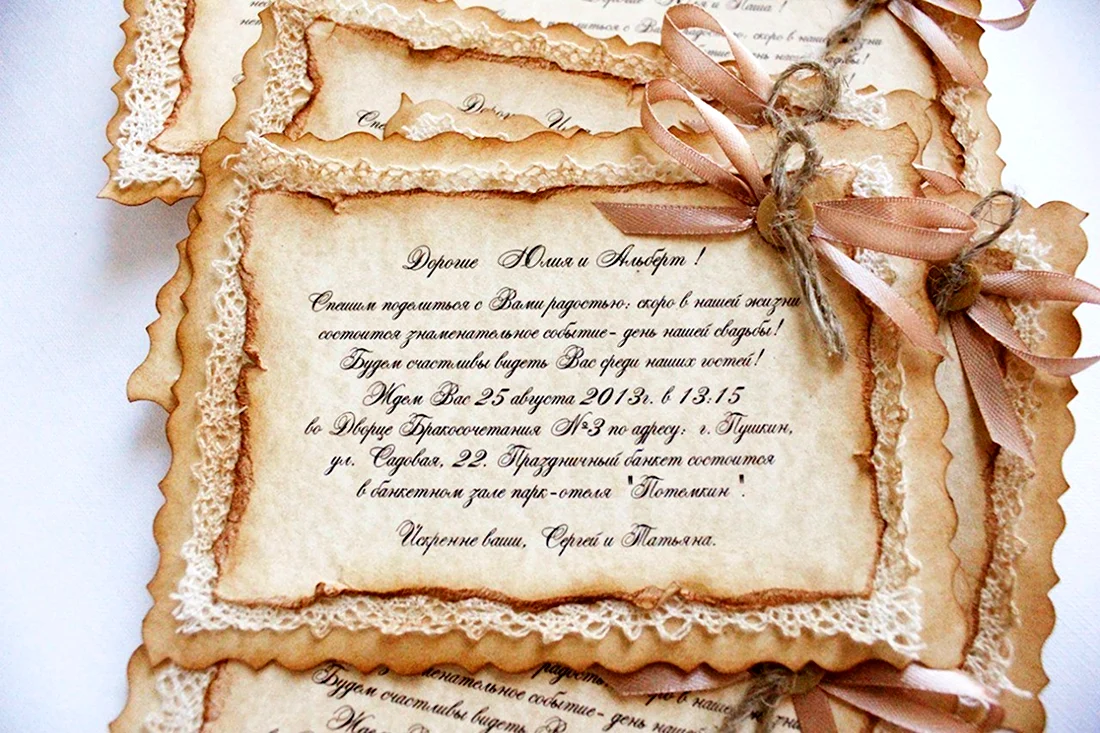 и Паша !
скоро в нашей жизни
Дорогие Юлия и Альберт !
Спешим поделиться с Вами радостью: скоро в нашей жизни
состоится знаменательное событие- день нашей свадьбы!
Будем счастливы видеть Вас среди наших гостей!
Ждем Вас 25 августа 2013г. в 13:15
во Дворце Бракосочетания №3 по адресу: г. Пушкин,
ул. Садовая, 22. Праздничный банкет состоится
в банкетном зале парк-отеля "Потемкин".
Искренне ваши, Сергей и Татьяна.
скоро в нашей
событие- день нашей
Будем счастливы видеть